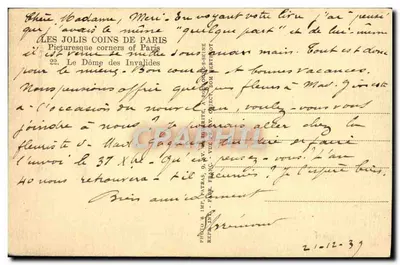 Chère Madame, Merci. En voyant votre livre j'ai pensé
que j'avais le même "quelque part" et de lui-même
LES JOLIS COINS DE PARIS
il est venu se mettre sous ma main. Tout est donc
Picturesque corners of Paris
22. Le Dôme des Invalides
pour le mieux. Bon courage et bonnes vacances.
Nous pensions offrir quelques fleurs à Mad.
à l'occasion du nouvel an, voulez-vous vous
joindre à nous? Je pourrais aller chez la
fleuriste
l'envoi le 31 Qu'en pensez-vous? L'an
40 nous retrouvera-t-il réunis? Je l'espère bien.
Bien amicalement
21-12-39